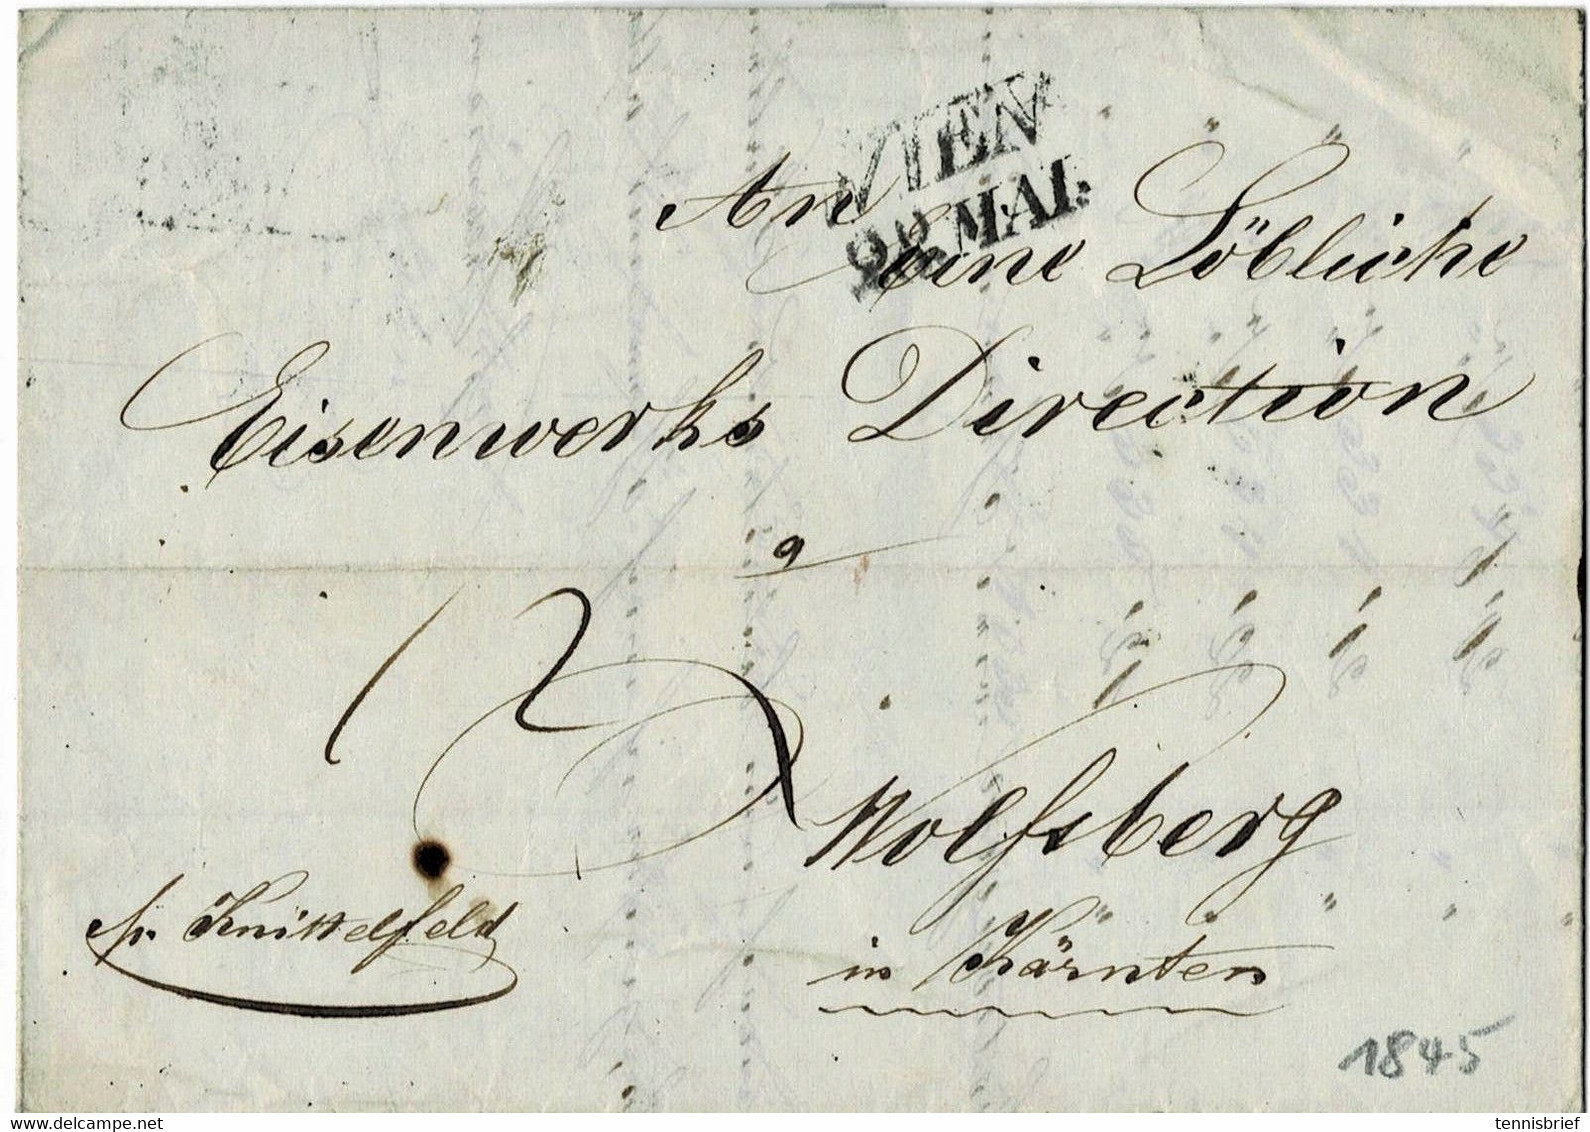 WIEN
22. MAI.
An
eine Löbliche
Eisenwerks Direction
a
12
Wolfsberg
in Kärnten
pr. Knittelfeld
1845
www.delcampe.net
tennisbrief